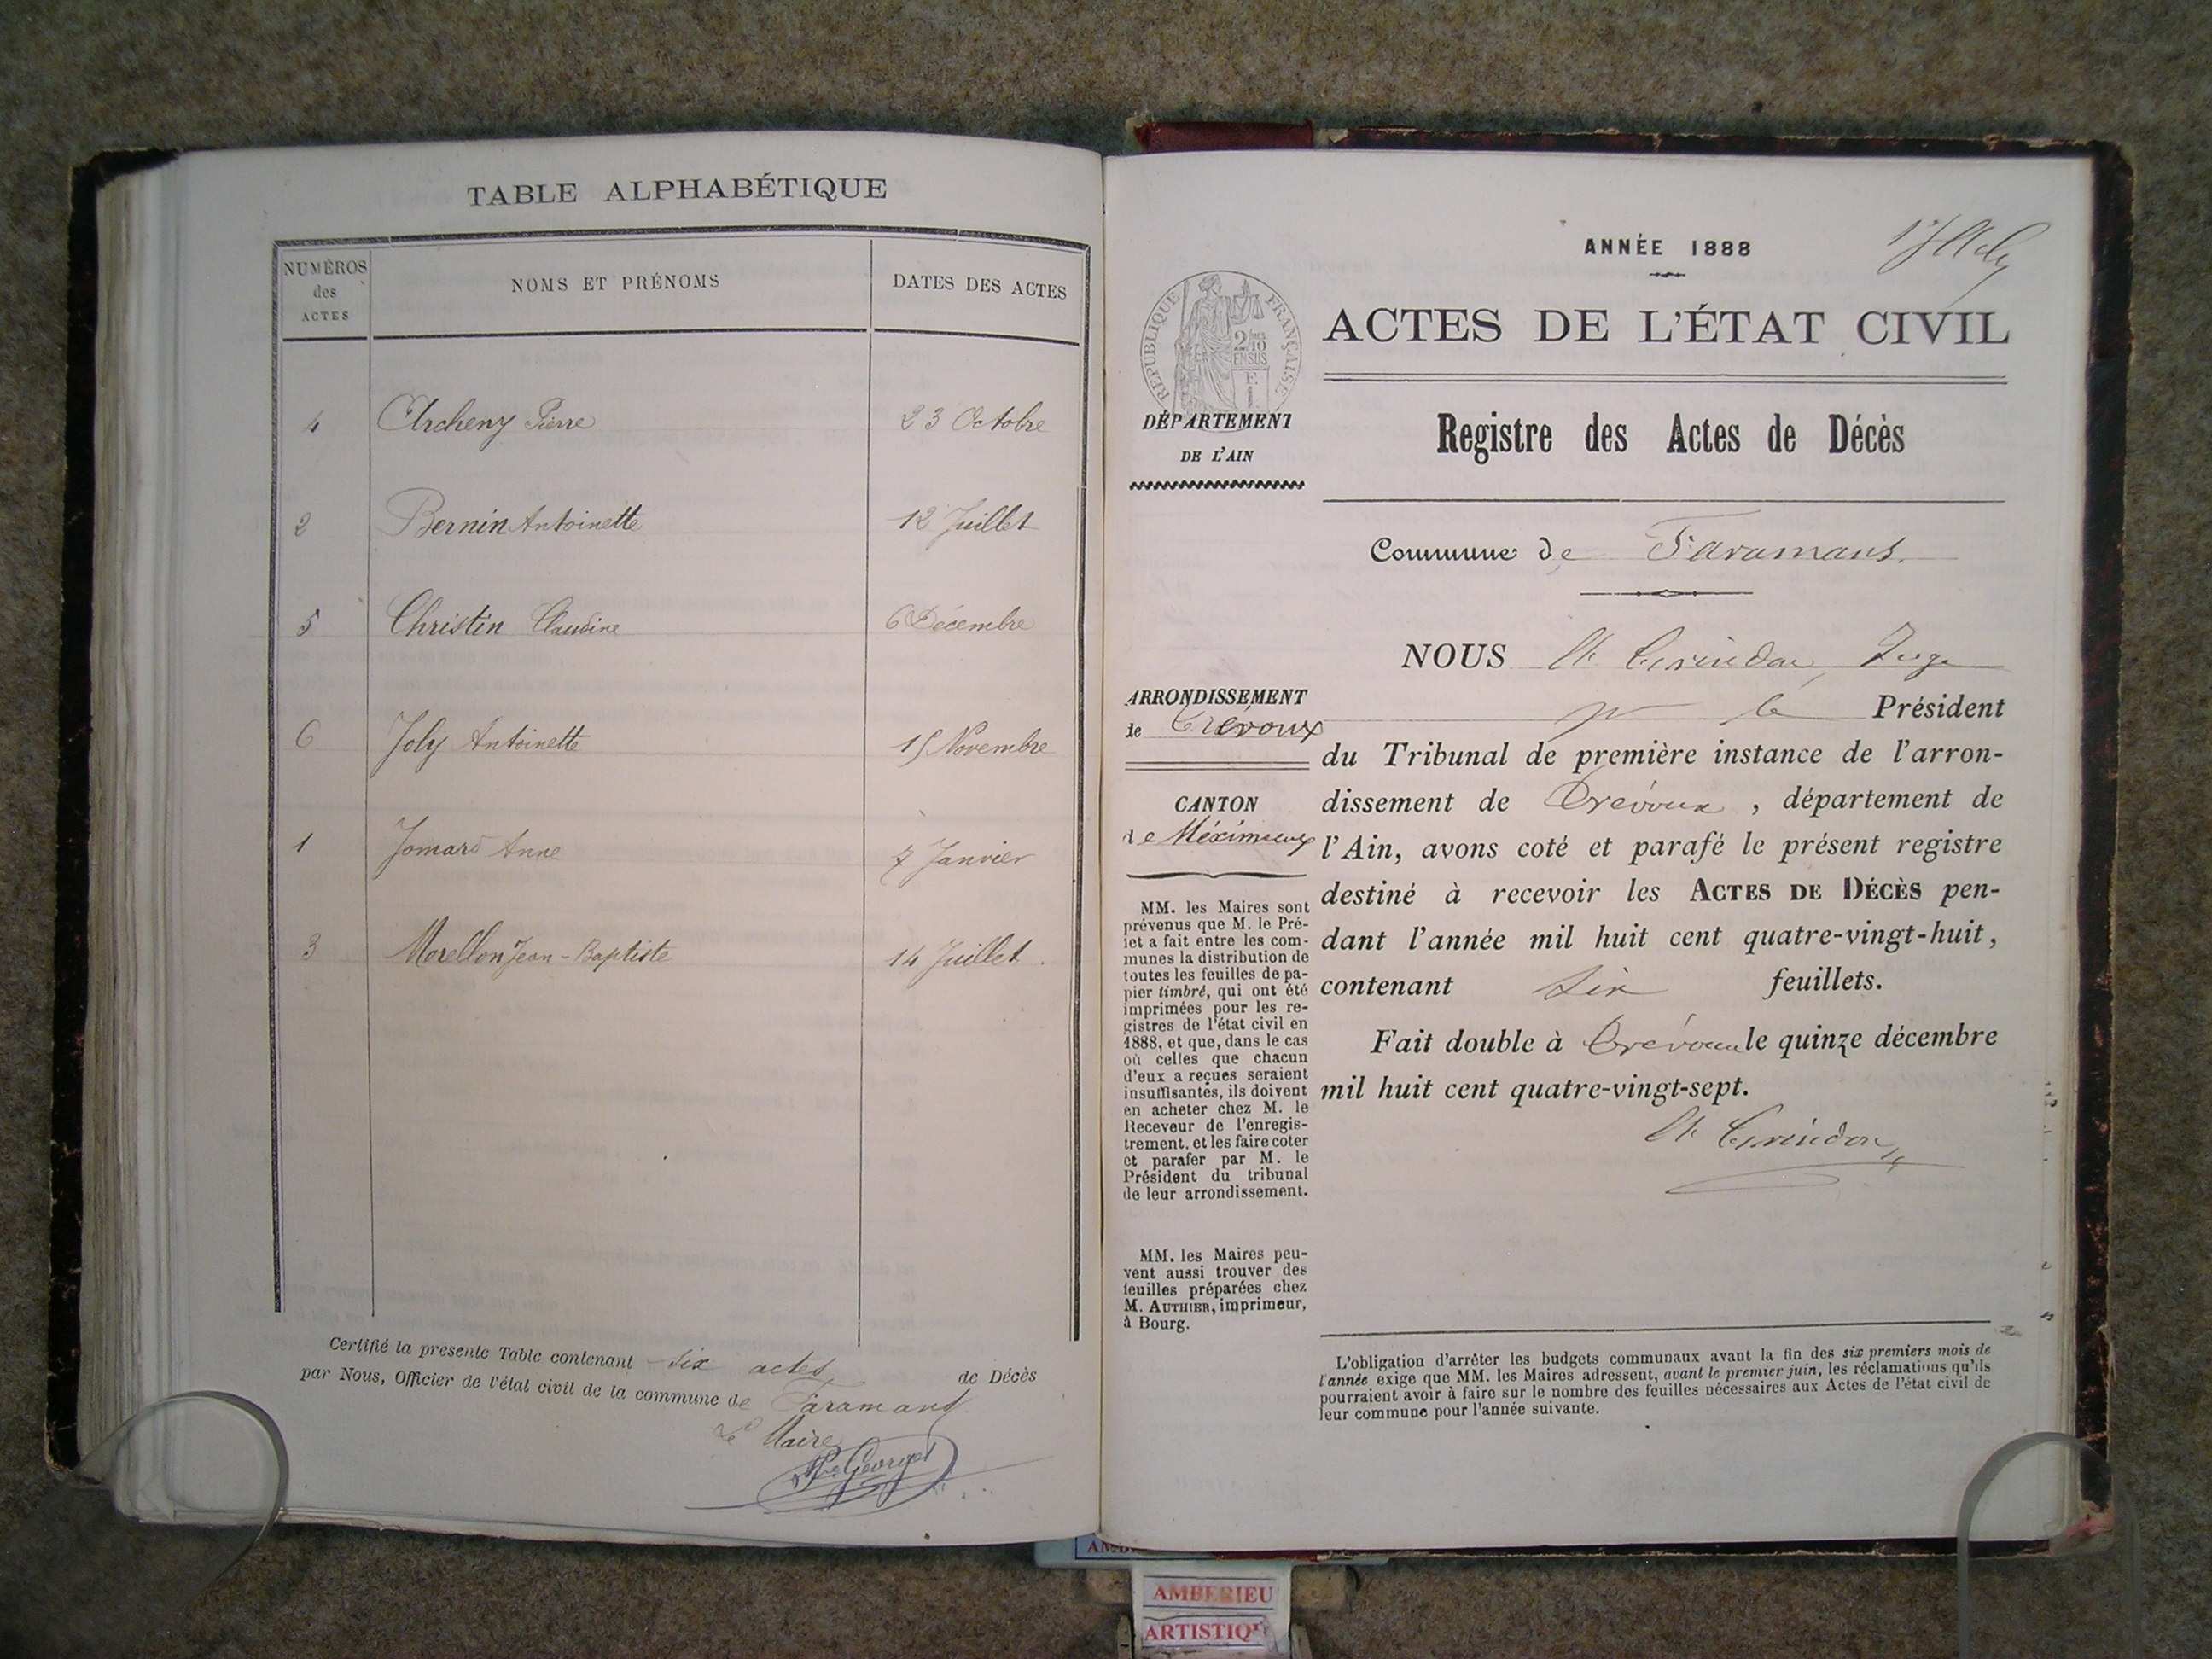 TABLE ALPHABÉTIQUE
NUMÉROS des ACTES NOMS ET PRÉNOMS DATES DES ACTES
4 Archeny Pierre 23 Octobre
2 Bernin Antoinette 12 Juillet
5 Christin Claudine 6 Décembre
6 Joly Antoinette 15 Novembre
1 Jomard Anne 7 Janvier
3 Morellon Jean-Baptiste 14 Juillet.
Certifié la présente Table contenant six actes de Décès
par Nous, Officier de l'état civil de la commune de Faramans
Le Maire
Georges
ANNÉE 1888
ACTES DE L'ÉTAT CIVIL
RÉPUBLIQUE FRANÇAISE
2/10 EN SUS
DÉPARTEMENT
DE L'AIN
Registre des Actes de Décès
Commune de Faramans.
ARRONDISSEMENT
de Trévoux
CANTON
de Méximieux
MM. les Maires sont
prévenus que M. le Pré-
fet a fait entre les com-
munes la distribution de
toutes les feuilles de pa-
pier timbré, qui ont été
imprimées pour les re-
gistres de l'état civil en
1888, et que, dans le cas
où celles que chacun
d'eux a reçues seraient
insuffisantes, ils doivent
en acheter chez M. le
Receveur de l'enregis-
trement, et les faire coter
et parafer par M. le
Président du tribunal
de leur arrondissement.
MM. les Maires peu-
vent aussi trouver des
feuilles préparées chez
M. AUTHIER, imprimeur,
à Bourg.
NOUS Juge
Président
du Tribunal de première instance de l'arron-
dissement de Trévoux, département de
l'Ain, avons coté et parafé le présent registre
destiné à recevoir les ACTES DE DÉCÈS pen-
dant l'année mil huit cent quatre-vingt-huit,
contenant six feuillets.
Fait double à Trévoux le quinze décembre
mil huit cent quatre-vingt-sept.
L'obligation d'arrêter les budgets communaux avant la fin des six premiers mois de
l'année exige que MM. les Maires adressent, avant le premier juin, les réclamations qu'ils
pourraient avoir à faire sur le nombre des feuilles nécessaires aux Actes de l'état civil de
leur commune pour l'année suivante.
AMBERIEU
ARTISTIQ